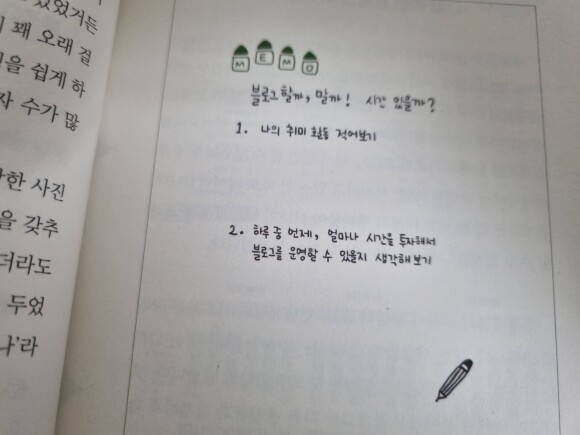 있었거든
꽤 오래 걸
을 쉽게 하
자 수가 많
한 사진
을 갖추
더라도
두었
나'라
MEMO
블로그 할까, 말까! 시간 있을까?
1. 나의 취미 활동 적어보기
2. 하루 중 언제, 얼마나 시간을 투자해서
블로그를 운영할 수 있을지 생각해 보기